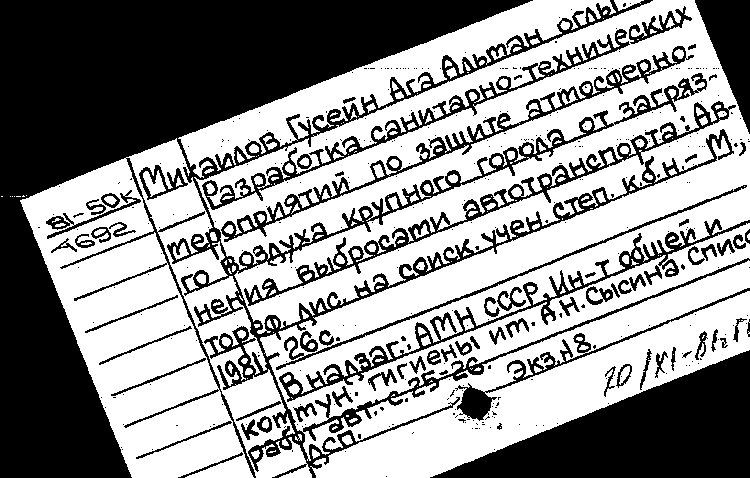 Микаилов, Гусейн Ага Альтан оглы.
81-50к
7692
Разработка санитарно-технических
тероприятий по защите атмосферно-
го воздуха крупного города от загряз-
нения выбросати автотранспорта: Ав-
тореф. дис. на соиск. учен. степ. к.б.н. - М.,
1981. - 26с.
В надзаг.: АМН СССР, Ин-т общей и
коттун. гигиены ит. А.Н. Сысина. Списо
работ авт.: с. 25-26. Экз. н8.
ДСП.
20/XI-81г